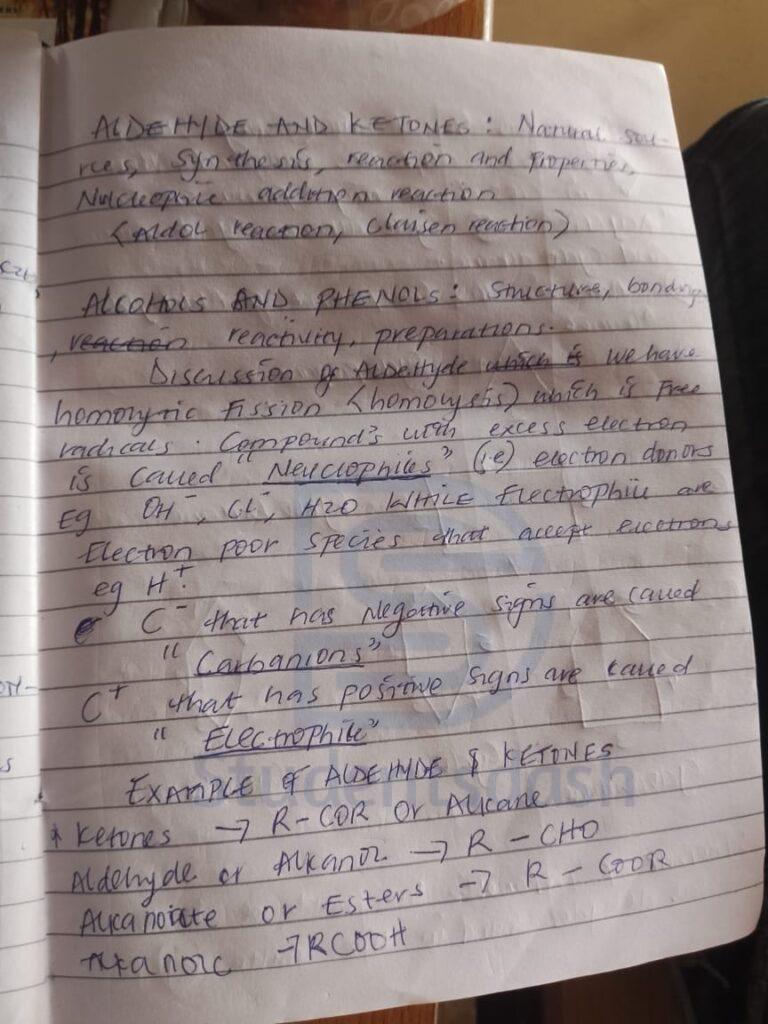 ALDEHYDE AND KETONES: Natural sou-
rces, Synthesis, reaction and Properties,
Nucleophic addition reaction
(Aldol reaction, Claisen reaction)
ALCOHOLS AND PHENOLS: Structure, bonding
, reaction reactivity, preparations.
Discussion of Aldehyde which is we have
homolytic fission (homolysis) which is Free
radicals. Compound's with excess electron
is called "Neucliophiles" (i.e) electron donors
Eg OH⁻, Cl⁻, H2O WHILE Electrophile are
Electron poor species that accept electrons
eg H⁺.
C⁻ that has Negative signs are called
"Carbanions"
C⁺ that has positive signs are called
"Electrophile"
EXAMPLE OF ALDEHYDE & KETONES
* Ketones → R-COR or Alkane
Aldehyde or Alkanol → R - CHO
Alkanoate or Esters → R - COOR
Alkanoic → RCOOH
Studentsdash